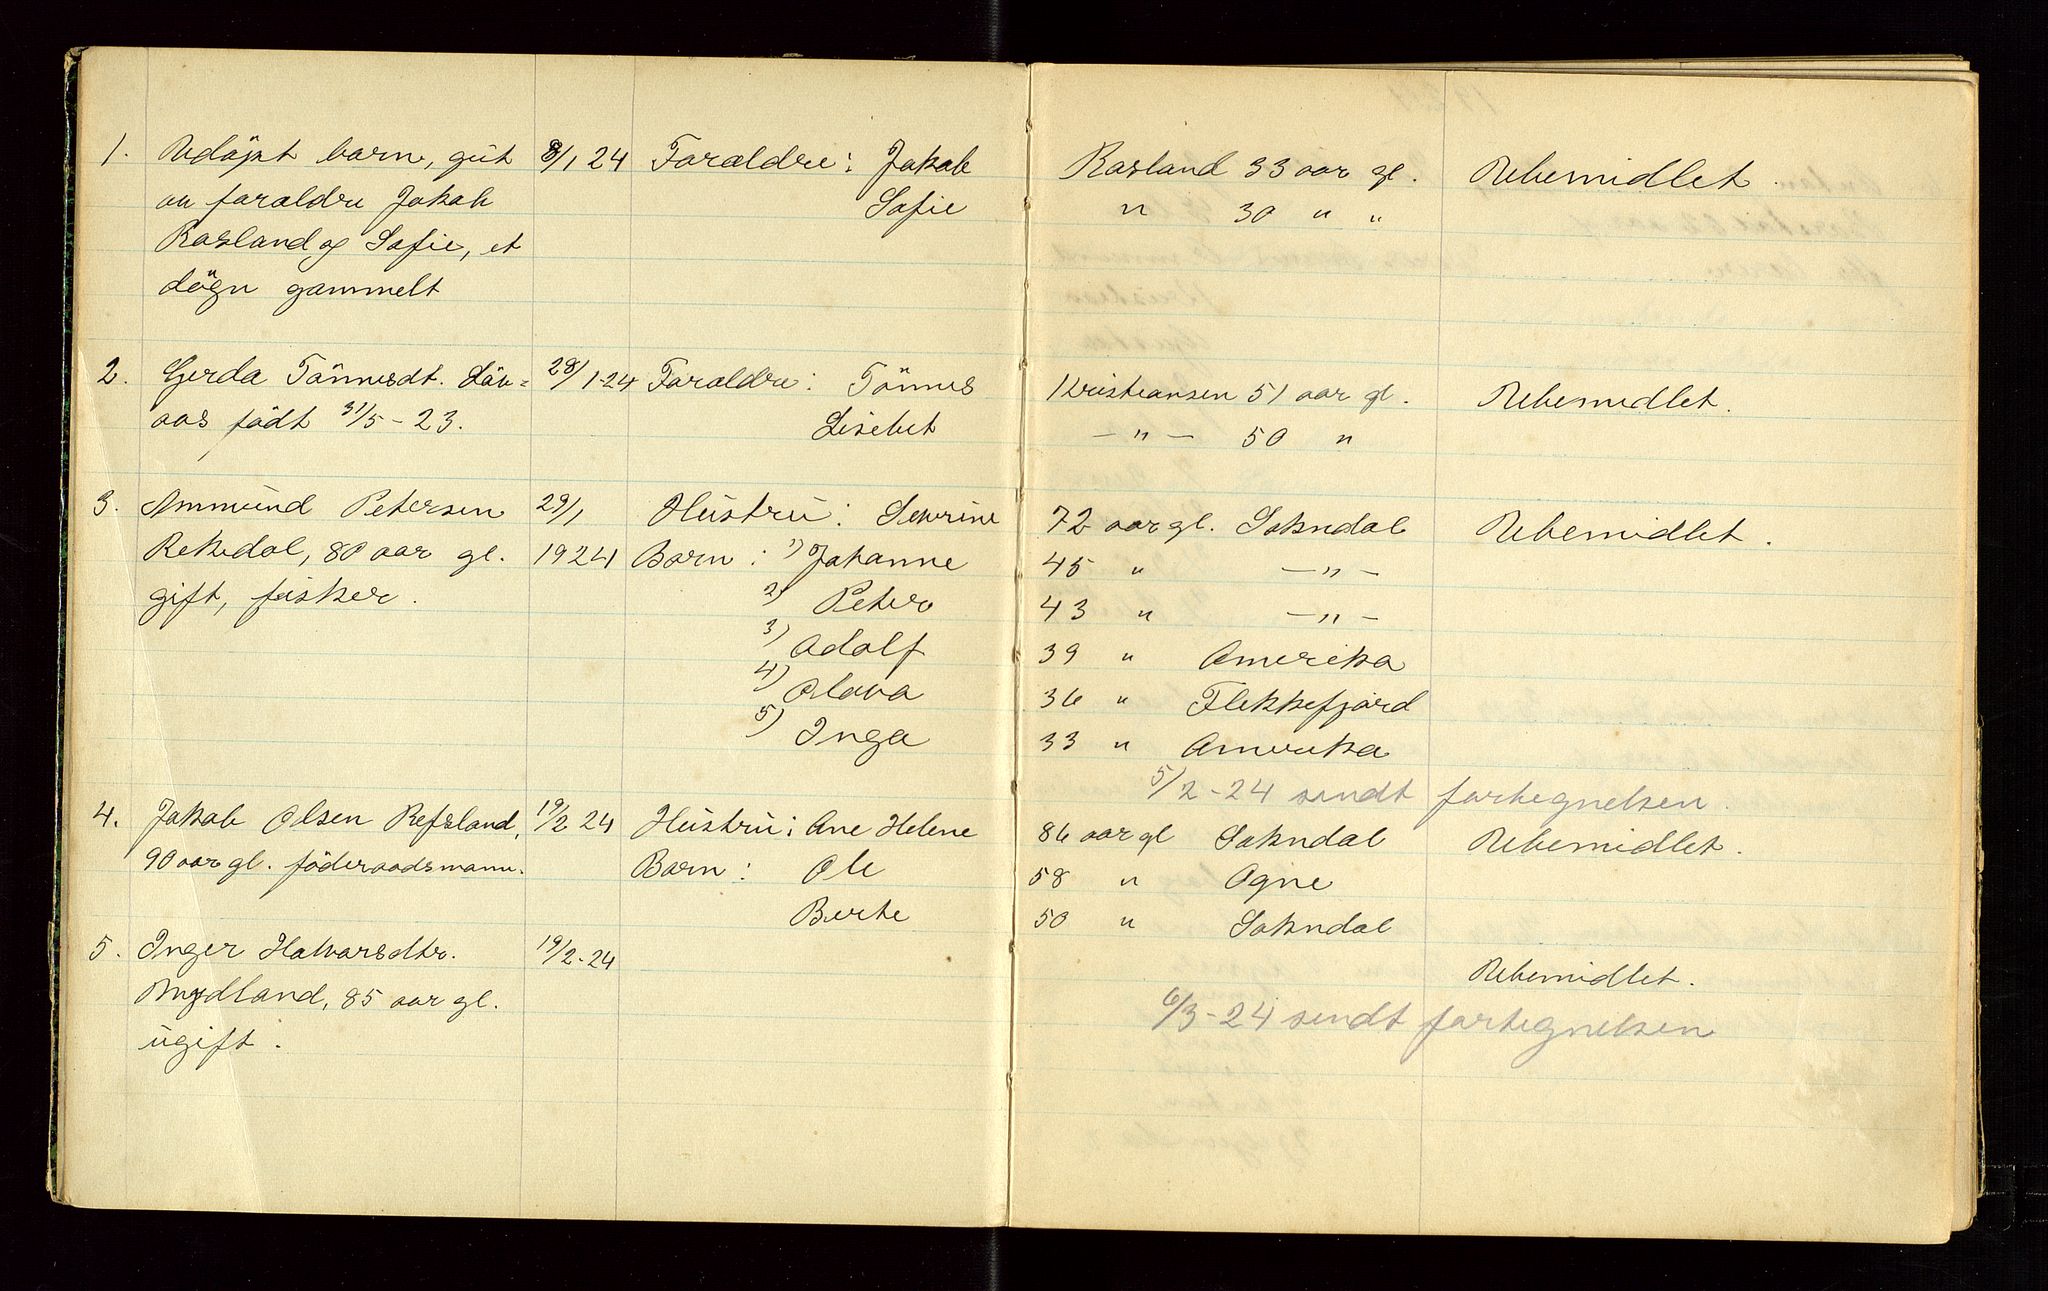 1. Udöpt barn, gut 8/1 24 Forældre: Jakob Rosland 33 aar gl. Ubemidlet.
av forældre Jakob Sofie " 30 " "
Rosland og Sofie, et
dögn gammelt
2. Gerda Tönnesdt. Löv= 28/1-24 Forældre: Tönnes Kristiansen 51 aar gl. Ubemidlet.
aas födt 31/5-23. Lisebet - " - 50 "
3. Ammund Petersen 29/1 Hustru: Severine 72 aar gl. Sokndal Ubemidlet.
Rekedal, 80 aar gl. 1924 Barn: 1) Johanne 45 " - " -
gift, fisker. 2) Peter 43 " - " -
3) Adolf 39 " Amerika
4) Olava 36 " Flekkefjord
5) Inga 33 " Amerika
5/2-24 sendt fortegnelsen.
4. Jakob Olsen Refsland, 19/2 24 Hustru: Ane Helene 86 aar gl Sokndal Ubemidlet.
90 aar gl. föderaadsmann. Barn: Ole 58 " Ogne
Berte 50 " Sokndal
5. Inger Halvorsdtr. 19/2-24 Ubemidlet.
Mydland, 85 aar gl.
ugift.
6/3-24 sendt fortegnelsen